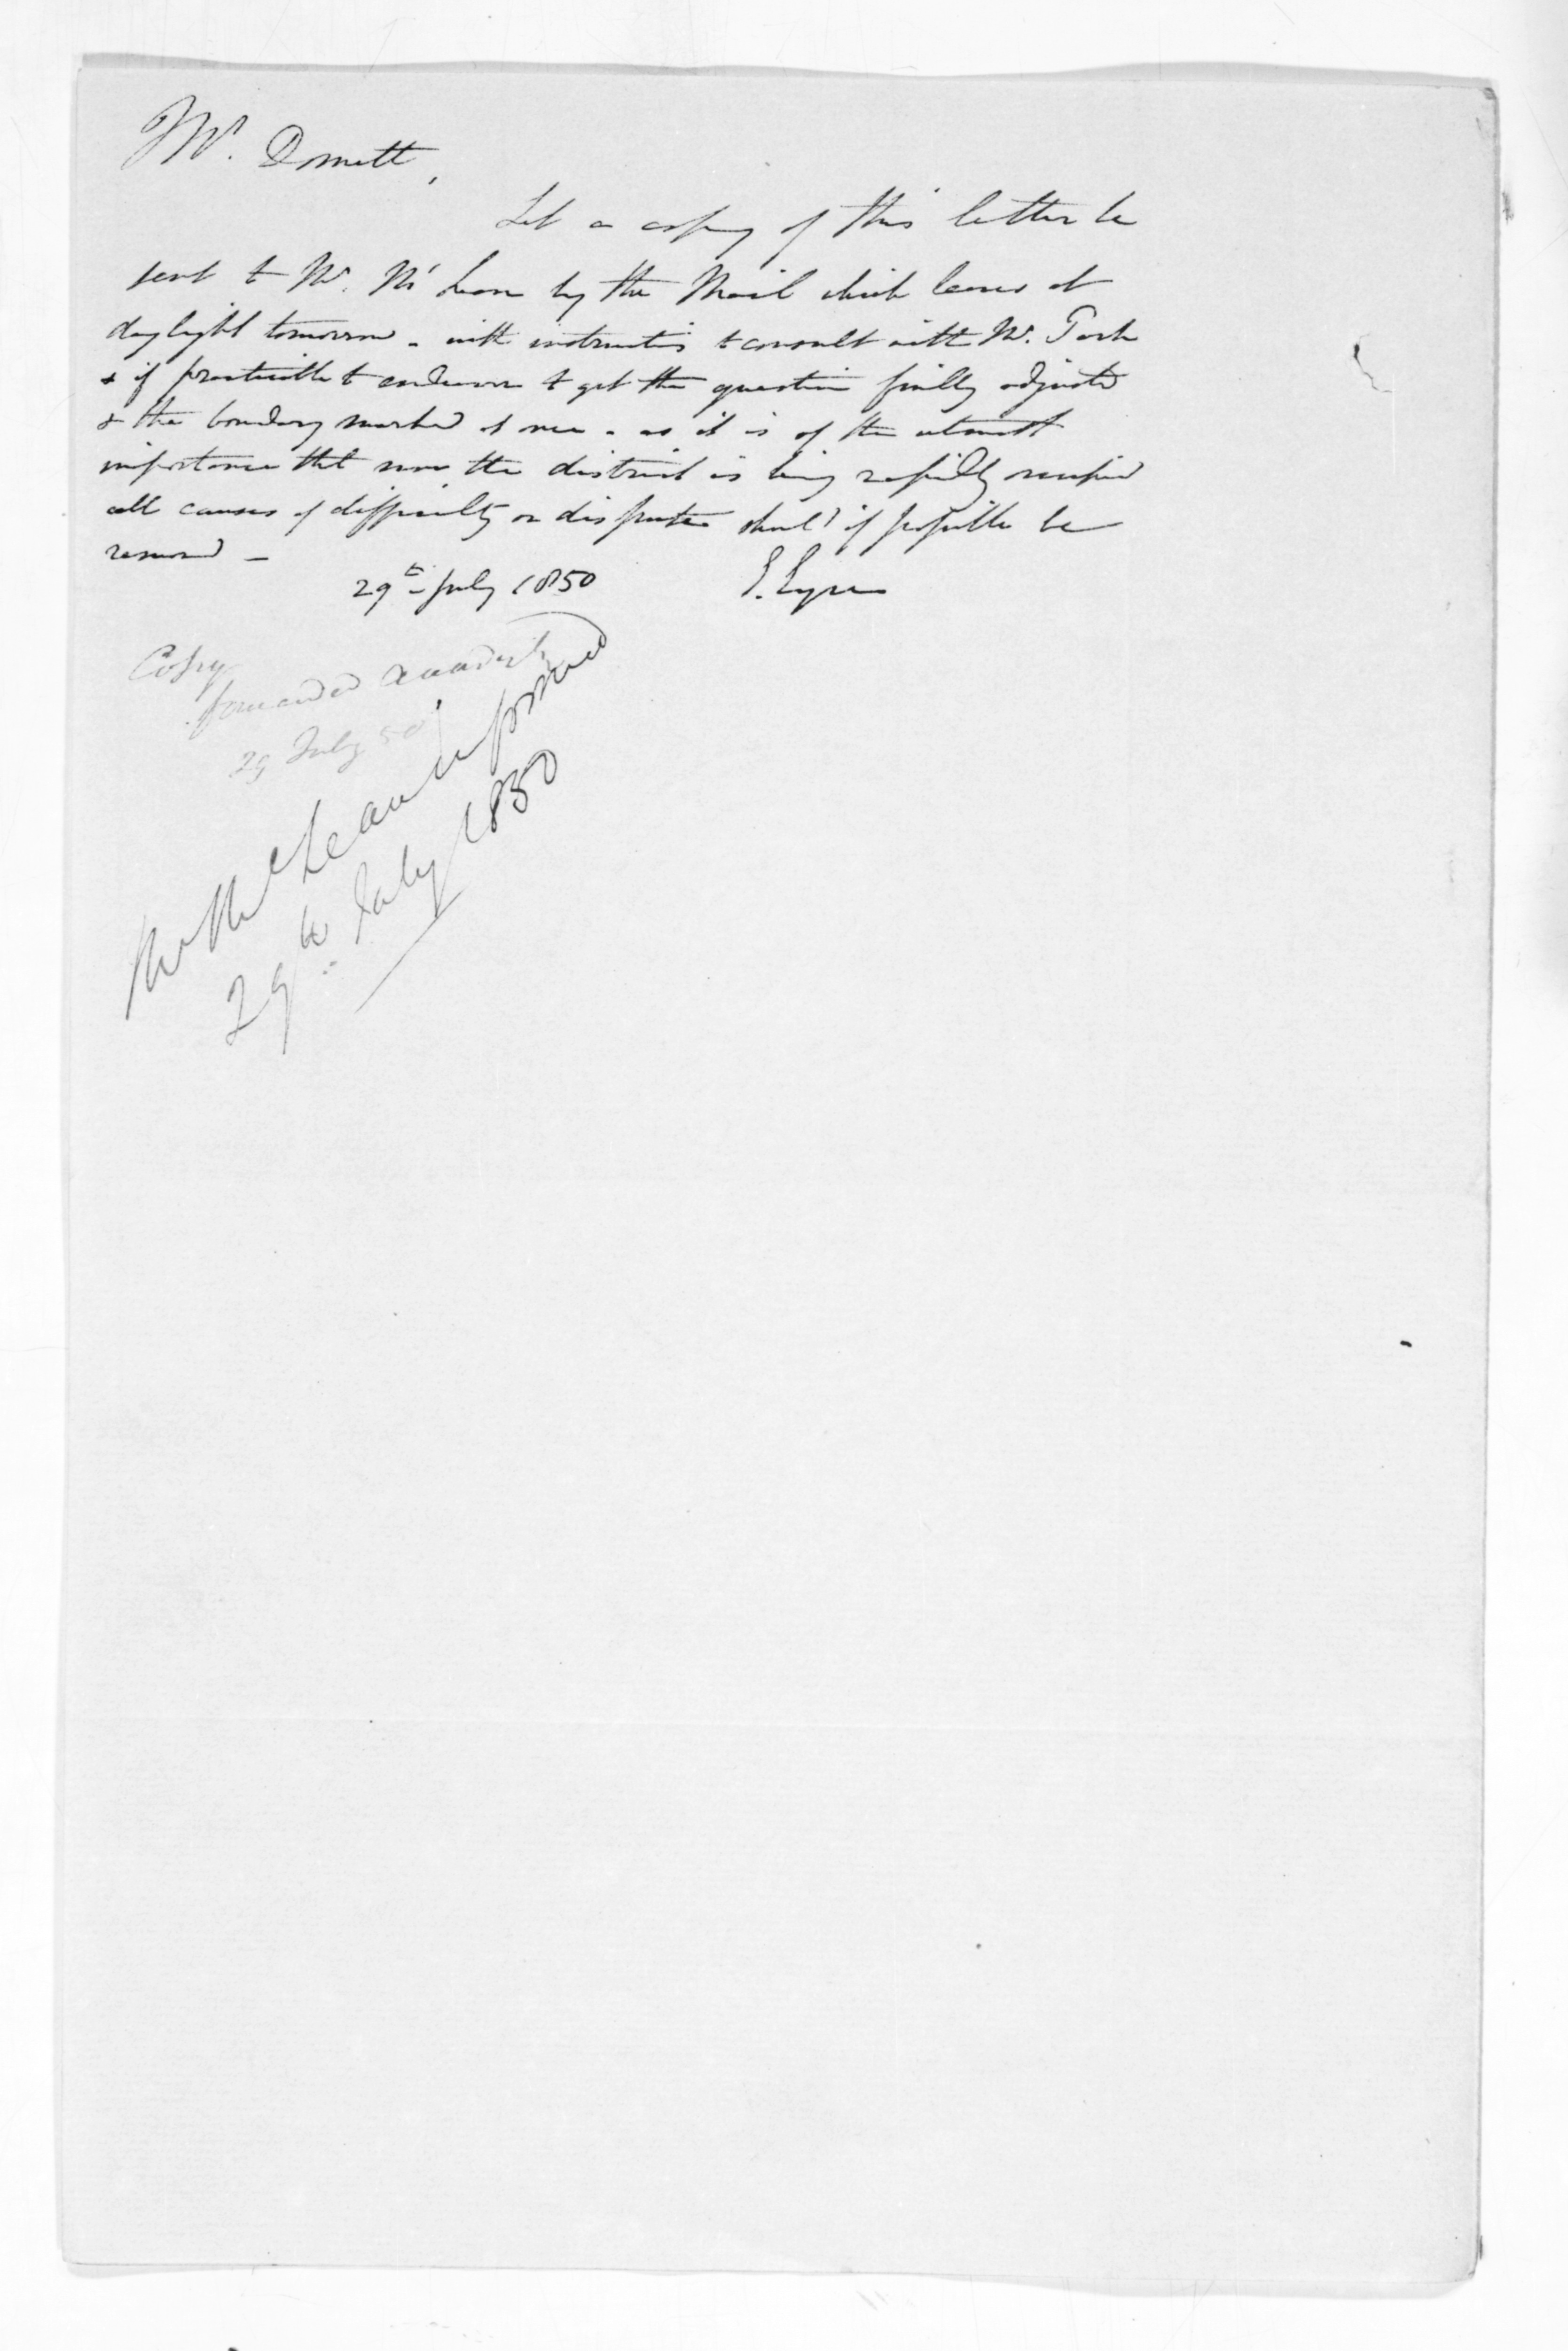 Mr. Domett,
Let a copy of this letter be
sent to Mr. McLean by the Mail which leaves at
daylight tomorrow - with instructions to consult with Mr. Park
& if practicable to endeavour to get the question finally adjusted
& the boundary marked at once - as it is of the utmost
importance that now the district is being rapidly occupied
all causes of difficulty or dispute should if possible be
removed -
29th July 1850 E. Eyre
Copy
forwarded
29 July 50
Mr McLean informed
29th July 1850